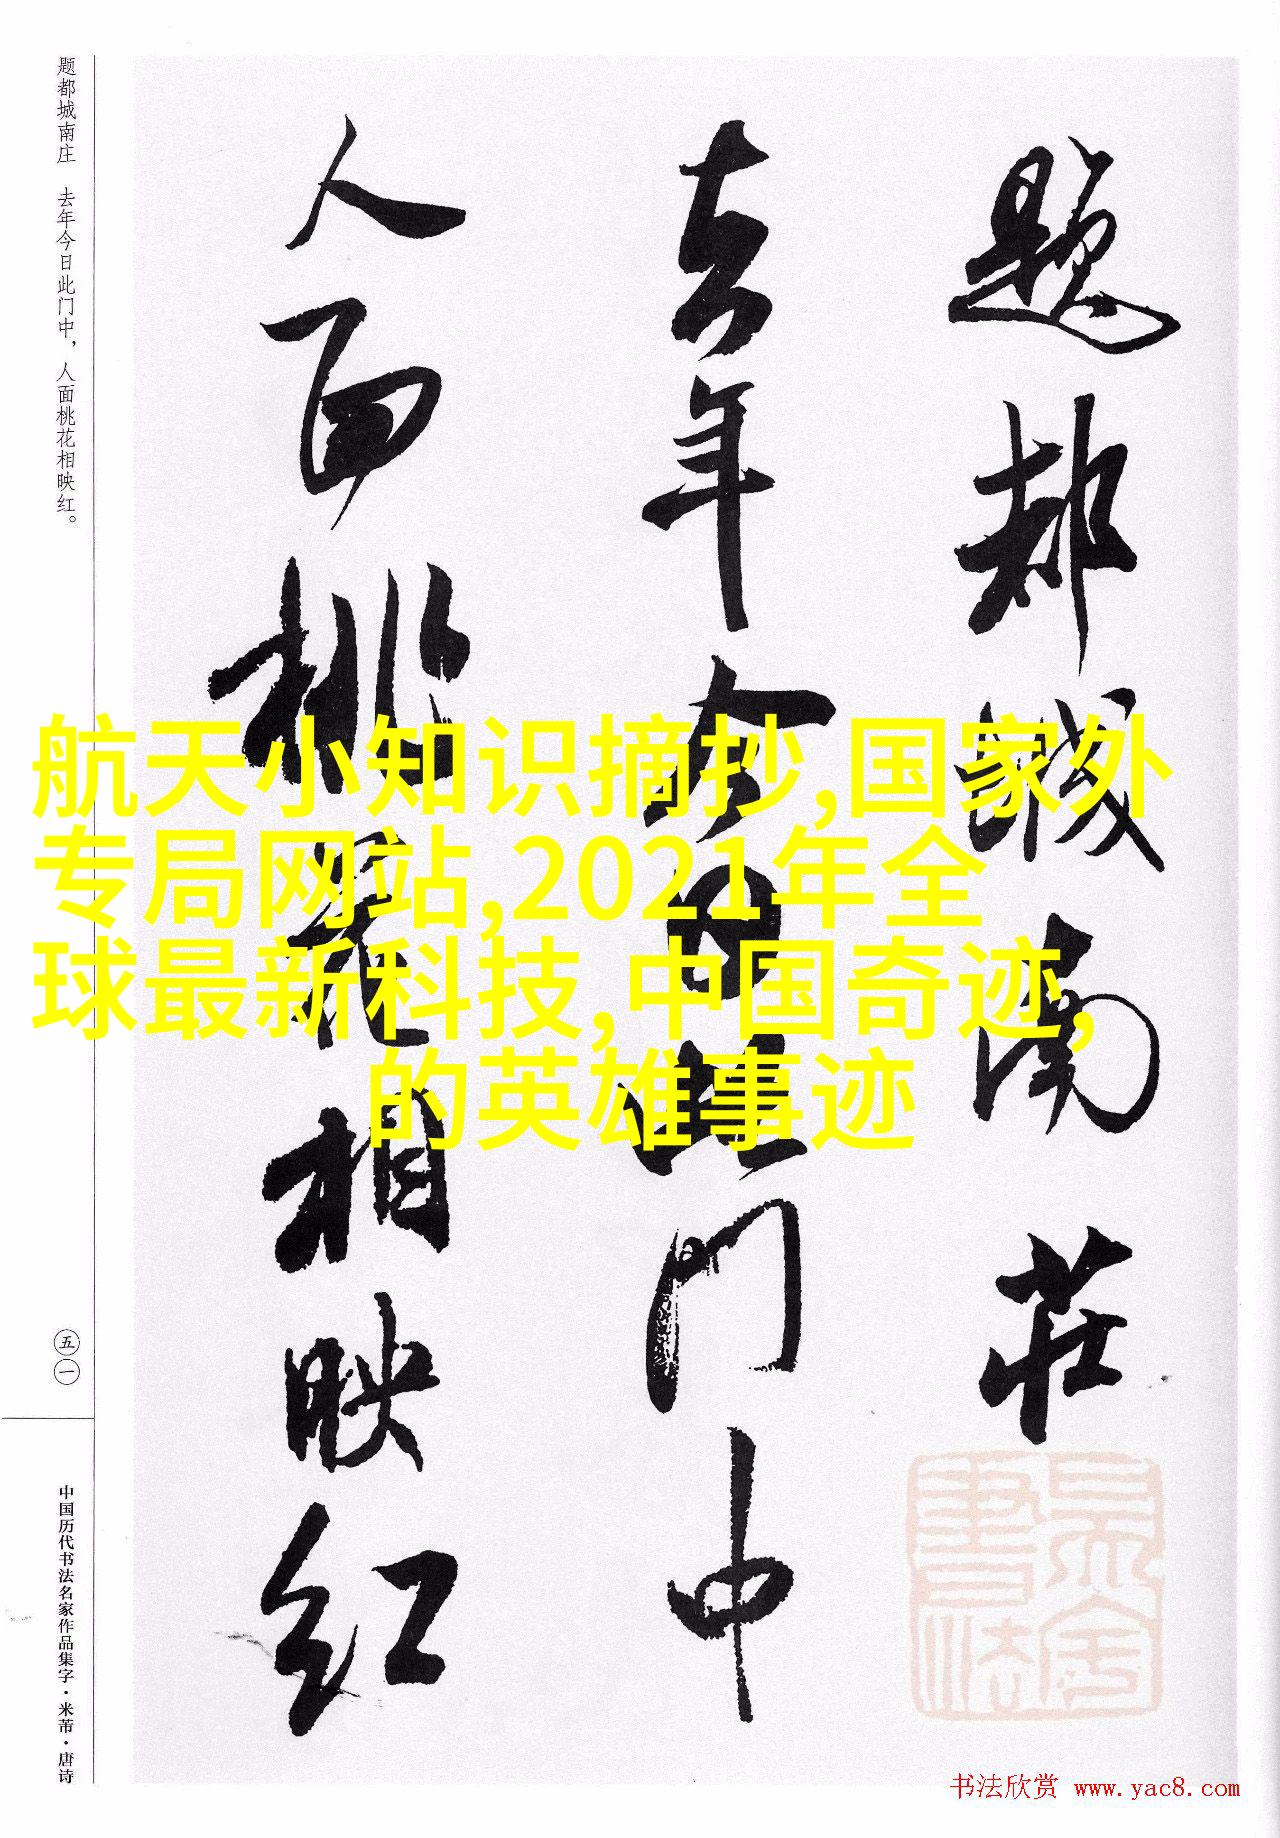 题都城南庄
去年今日此门中
人面桃花相映红
题都城南庄 去年今日此门中，人面桃花相映红。
五一
中国历代书法名家作品集字·米芾·唐诗
航天小知识摘抄,国家外
专局网站,2021年全
球最新科技,中国奇迹,
的英雄事迹
书法欣赏 www.yac8.com